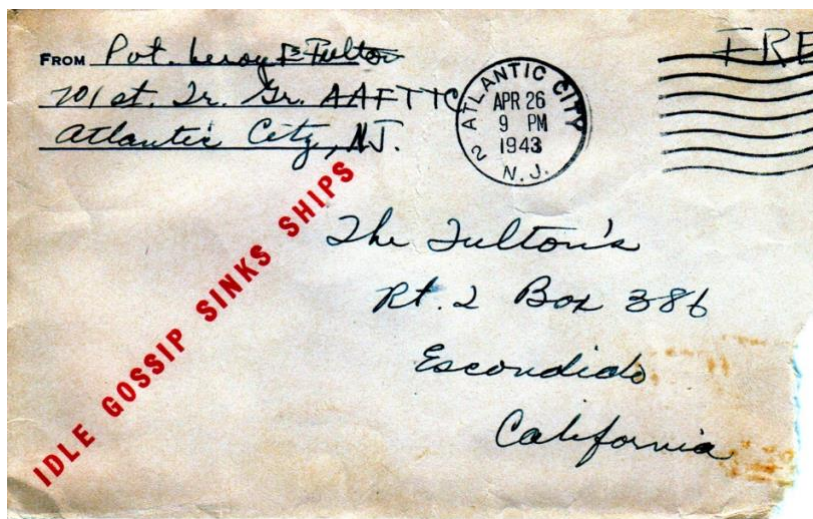 FROM Pvt. Leroy E Fulton
701 st. Tr. Gr. AAFTTC
Atlantic City, N.J.
ATLANTIC CITY
APR 26
9 PM
1943
2 N.J.
FRE
IDLE GOSSIP SINKS SHIPS
The Fulton's
Rt. 2 Box 386
Escondido
California